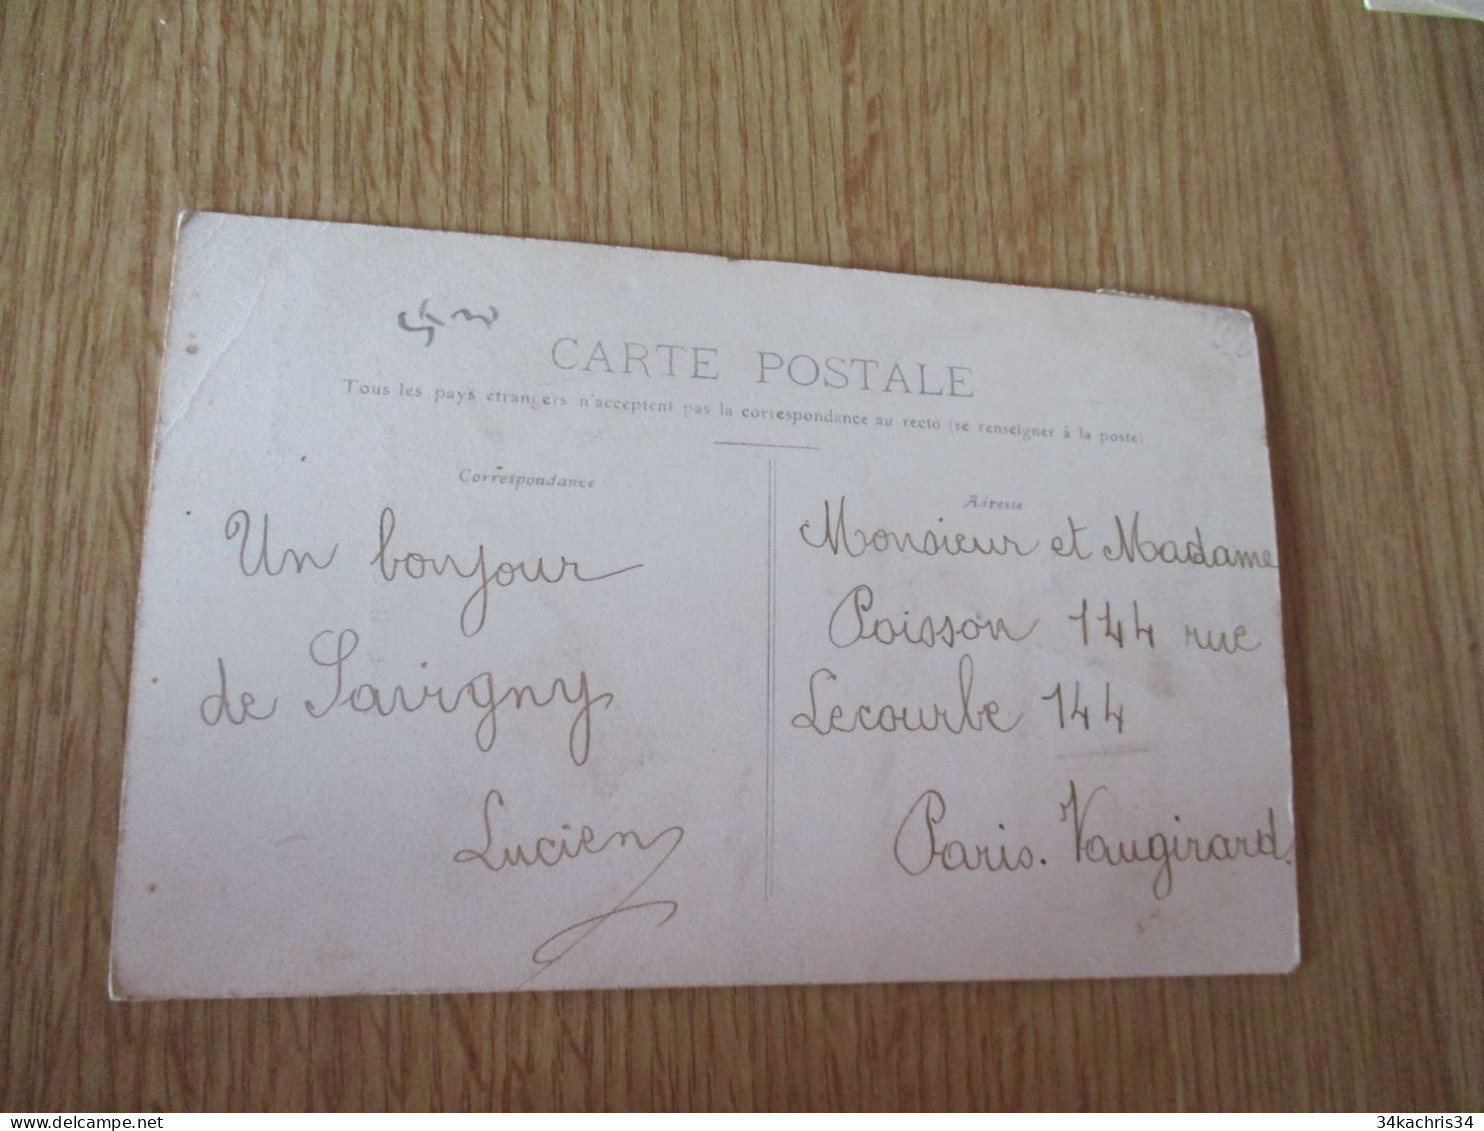 CARTE POSTALE
Tous les pays étrangers n'acceptent pas la correspondance au recto (se renseigner à la poste)
Correspondance
Un bonjour
de Savigny
Lucien
Adresse
Monsieur et Madame
Poisson 144 rue
Lecourbe 144
Paris. Vaugirard.
delcampe.net
34kachris34